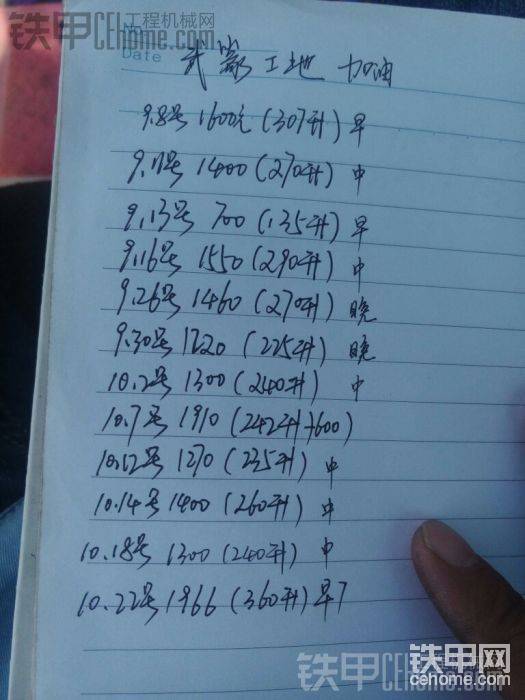 铁甲 工程机械网
CEhome.com
No.
Date
武 工地 加油
9.8号 1600元(307升) 早
9.11号 1400(270升) 中
9.13号 700(135升) 早
9.16号 1550(290升) 中
9.26号 1460(270升) 晚
9.30号 1220(225升) 晚
10.2号 1300(240升) 中
10.7号 1910(242升+600)
10.12号 1270(235升) 中
10.14号 1400(260升) 中
10.18号 1300(240升) 中
10.22号 1966(360升)早7
铁甲 工程机械网
CEhome.com
铁甲网